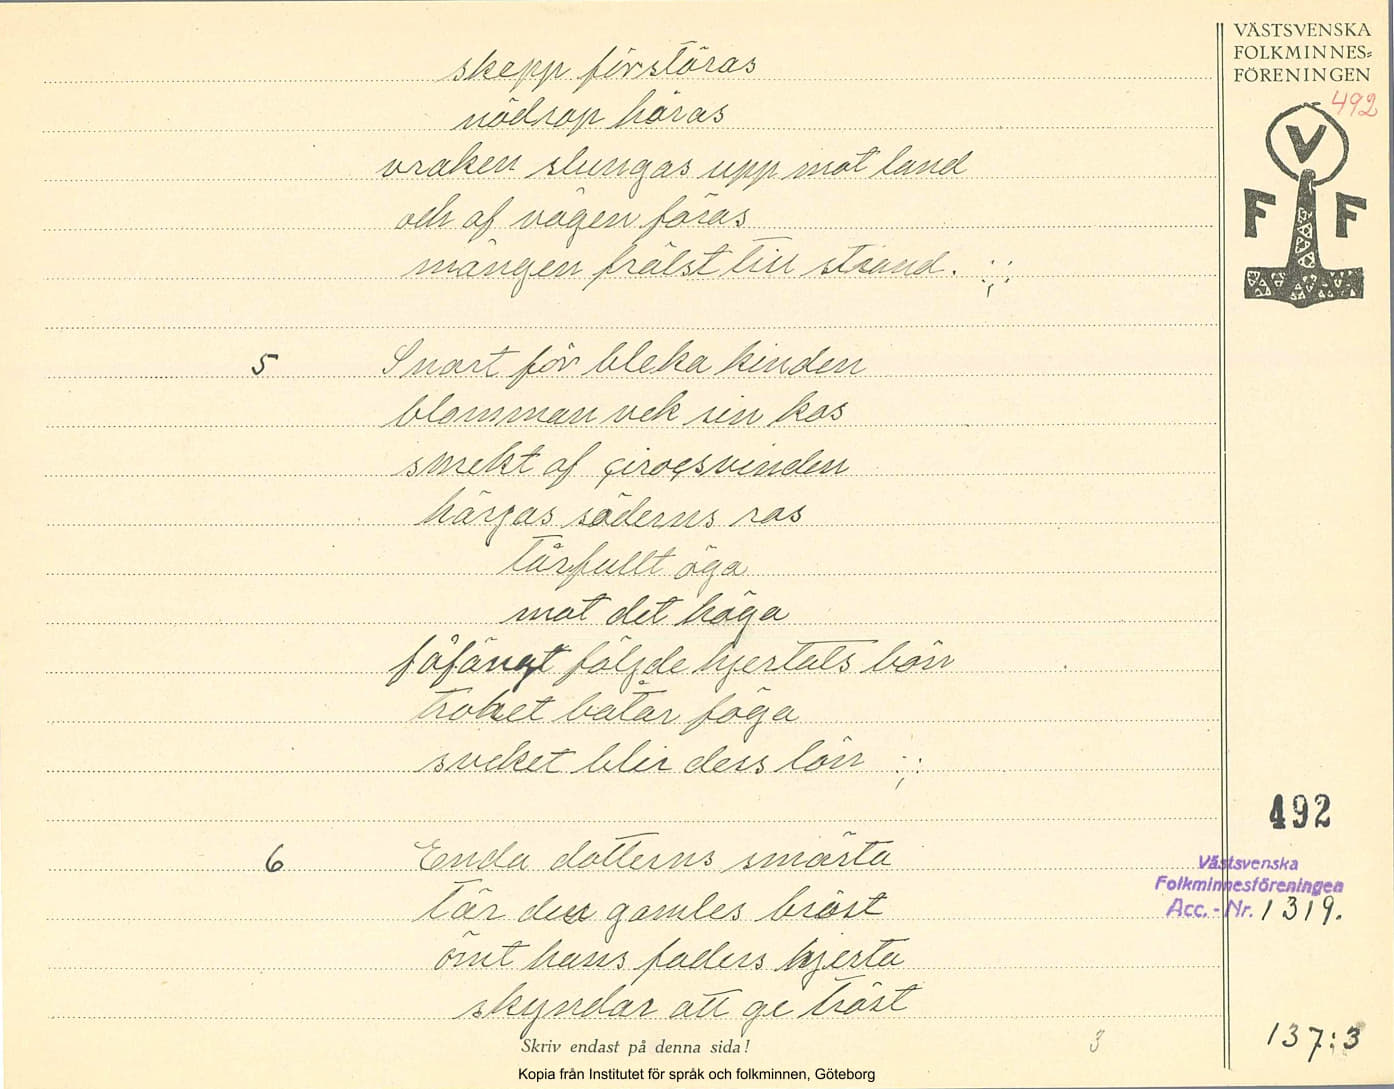 VÄSTSVENSKA
FOLKMINNES=
FÖRENINGEN
492
V
F F
skepp förstöras
nödrop höras
vraken slungas upp mot land
och af vågen föras
mången frälst till strand. :;:
5 Snart för bleka kinden
blomman vek sin kos
smekt af çiroçsvinden
härjas söderns ros
tårfullt öga
mot det höga
fåfängt följde hjertats bön
troket båtar föga
sveket blir dess lön :;:
492
6 Enda dotterns smärta
tär den gamles bröst
ömt hans faders hjerta
skyndar att ge tröst
Västsvenska
Folkminnesföreningen
Acc. - Nr. 1319.
Skriv endast på denna sida!
3
137:3
Kopia från Institutet för språk och folkminnen, Göteborg